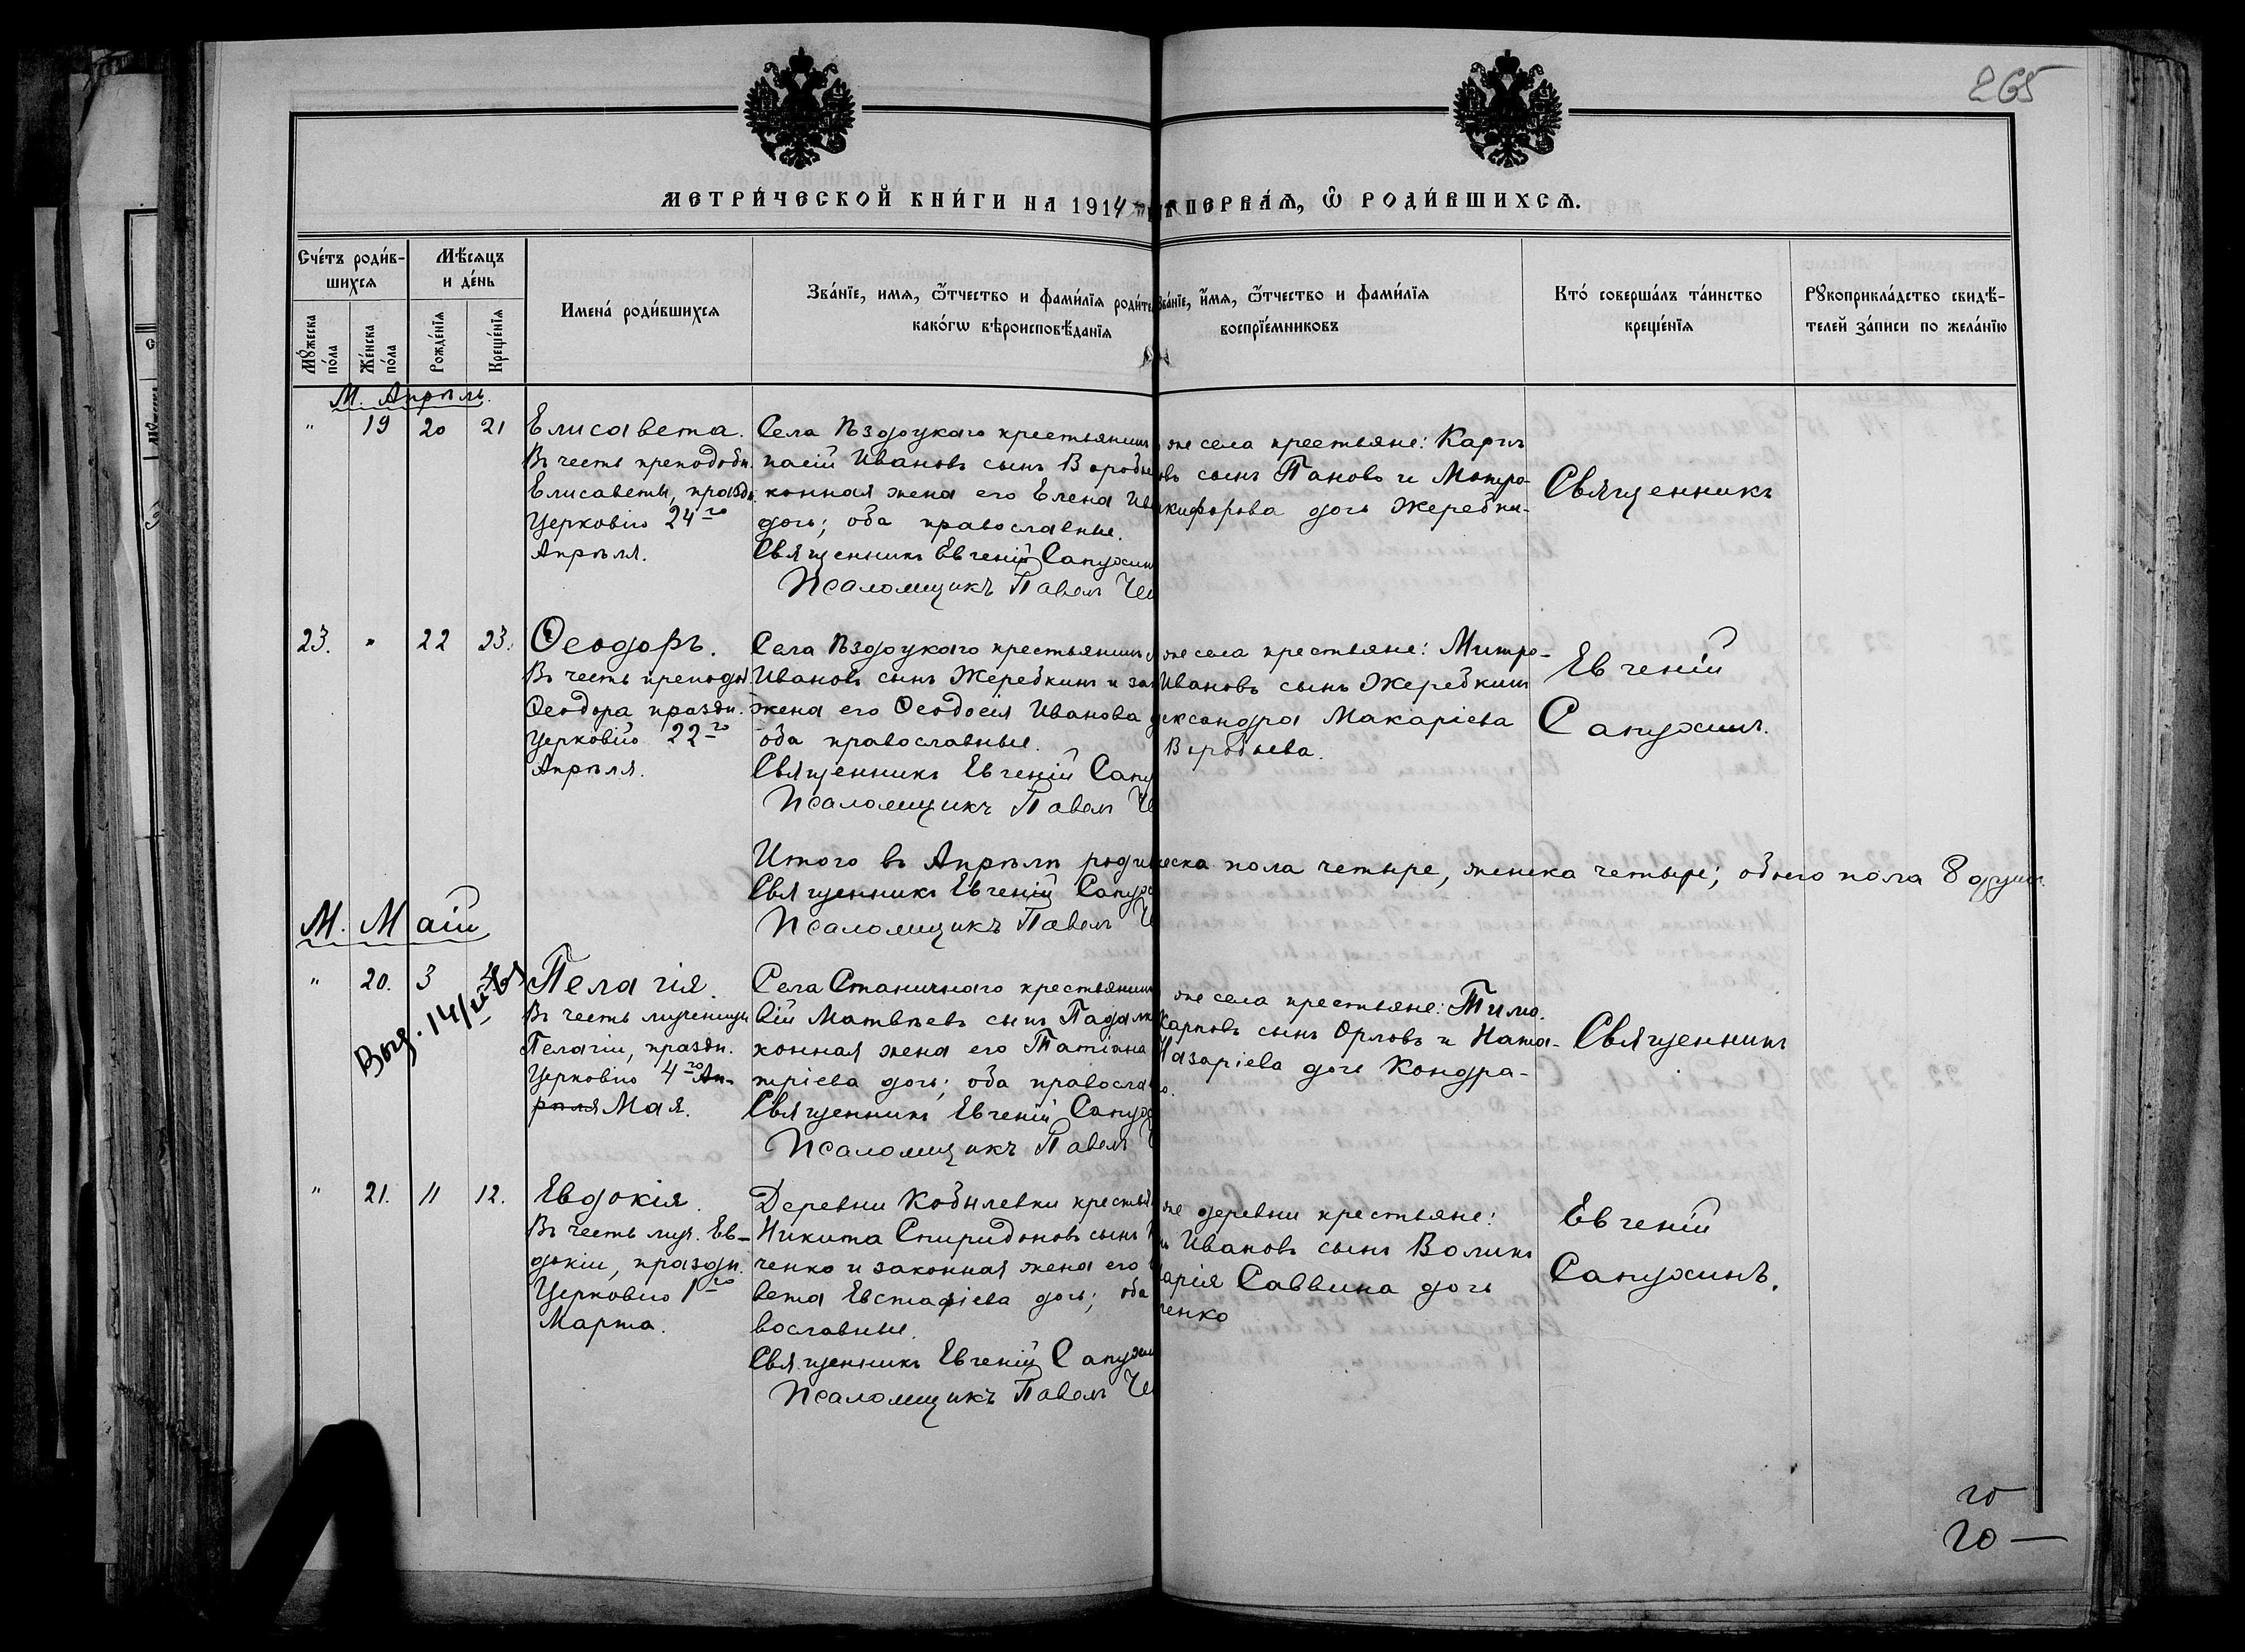 265
МЕТРИ́ЧЕСКОЙ КНИ́ГИ НА 1914 ПЕРВАѦ, Ѿ РОДИ́ВШИХСѦ.
Сче́тъ роди́в-
шихсѧ
Мѣсѧцъ
и де́нь
Мꙋжеска по́ла
Же́нска по́ла
Рожде́нїѧ
Креще́нїѧ
Имена́ роди́вшихсѧ
Зва́нїе, имѧ, ѿтчество и фами́лїѧ родите
како́гѡ вѣроисповѣданїѧ
Зва́нїе, имѧ, ѿтчество и фами́лїѧ
воспрїе́мниковъ
Кто́ соверша́лъ та́инство
креще́нїѧ
Рꙋкоприкла́дство свидѣ-
телей за́писи по жела́нїю
М. Апрѣль.
" 19 20 21
Елисавета.
Въ честь преподобн.
Елисаветы, праздн.
Церковію 24-го
Апрѣля.
Села Вздоуцкаго крестьянин
пасій Ивановъ сынъ Воробье
конная жена его Елена Ива
дочь; оба православные.
Священникъ Евгеній Сапухин
Псаломщикъ Павелъ Че
же села крестьяне: Карпъ
овъ сынъ Пановъ и Матро-
кифорова дочь Жеребки-
Священникъ
23. " 22 23.
Ѳеодоръ.
Въ честь преподоб
Ѳеодора праздн.
Церковію 22-го
Апрѣля.
Села Вздоуцкаго крестьянинъ
Ивановъ сынъ Жеребкинъ и зак
жена его Ѳеодосія Иванова д
оба православные.
Священникъ Евгеній Сапу
Псаломщикъ Павелъ Че
же села крестьяне: Митро-
Ивановъ сынъ Жеребкинъ
ександра Макаріева
Воробьева.
Евгеній
Сапухинъ.
Итого въ Апрѣлѣ родил еска пола четыре, женска четыре; обоего пола 8 душъ
Священникъ Евгеній Сапухи
Псаломщикъ Павелъ Че
М. Маій
" 20. 3
Выд. 14/
Пелагія.
Въ честь мученицы
Пелагіи, праздн.
Церковію 4-го Ап-
рѣля Мая.
Села Станичнаго крестьянинъ
сій Матвѣевъ сынъ Падалк
конная жена его Татіана
тріева дочь; оба правосла
Священникъ Евгеній Сапух
Псаломщикъ Павелъ Ч
же села крестьяне: Тимо.
Карповъ сынъ Орловъ и Ната-
Назаріева дочь Кондра-
о.
Священникъ
" 21. 11 12.
Евдокія.
Въ честь муч. Ев-
докіи, праздн.
Церковію 1-го
Марта.
Деревни Кобылевки крестья
Никита Спиридоновъ сынъ
ченко и законная жена его
вета Евстафіева дочь; оба
вославные.
Священникъ Евгеній Сапухи
Псаломщикъ Павелъ Че
же деревни крестьяне:
Ивановъ сынъ Волик
арія Саввина дочь
ченко
Евгеній
Сапухинъ.
20
20 —